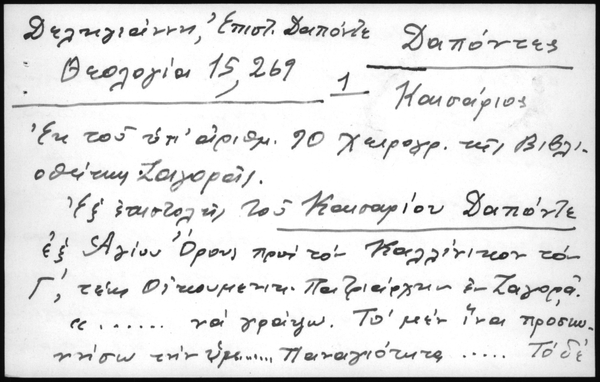 Δεληγιάννη, Ἐπιστ. Δαπόντε
Δαπόντες
Θεολογία 15, 269
1
Καισάριος
Ἐκ τοῦ ὑπ' ἀριθμ. 90 χειρογρ. τῆς Βιβλι-
οθήκης Ζαγορᾶς.
Ἐξ ἐπιστολῆς τοῦ Καισαρίου Δαπόντε
ἐξ Ἁγίου Ὄρους πρὸς τὸν Καλλίνικον τὸν
Γ', τέως Οἰκουμενικ. Πατριάρχην ἐν Ζαγορᾷ.
"...... νὰ γράψω. Τὸ μὲν ἵνα προσκυ-
νήσω τὴν ὑμ...... Παναγιότητα ..... Τὸ δὲ